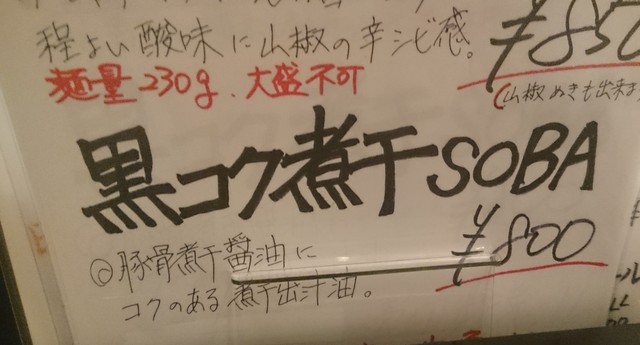 程よい酸味に山椒の辛シビ感。
¥850
麺量230g、大盛不可
(山椒ぬきも出来ま
黒コク煮干SOBA
¥800
◎豚骨煮干醤油に
コクのある煮干出汁油。